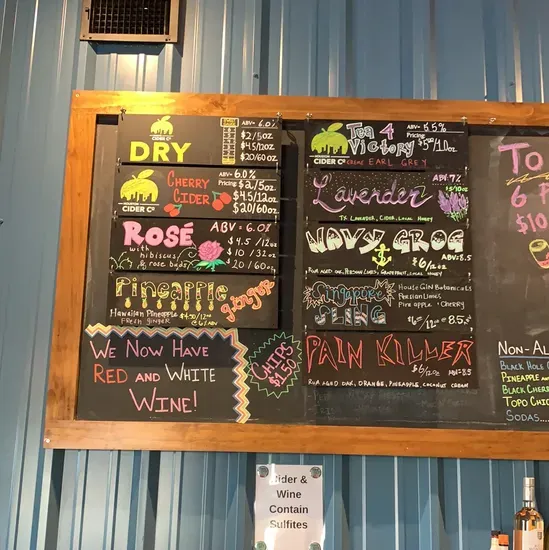 DRY
ABV= 6.0%
$2/5oz
$4.5/12oz
$20/60oz
HOUSTON
CIDER CO
CHERRY
CIDER
ABV= 6.0%
Pricing
$2/5oz
$4.5/12
$20/60oz
ROSÉ
with hibiscus
& rose buds
ABV= 6.0%
$4.5/12oz
$10/32oz
$20/60oz
Pineapple
ginger
Hawaiian Pineapple
Fresh ginger
$4.50/12oz
@6% ABV
WE NOW HAVE
RED AND WHITE
WINE!
CHIPS
$1.50
HOUSTON
CIDER CO
Tea 4
Victory
ABV= 5.5%
Pricing
EARL GREY
Lavender
ABV 7%
TX LAVENDER, CIDER, LOCAL HONEY
NAVY GROG
$6/12oz
ABV= 8.5
Singapore
SLING
House Gin Botanicals
Persian Limes
Pineapple + Cherry
$6/12oz = 8.5%
PAIN KILLER
$6/12oz
ABV=8.5
RUM AGED OAK, ORANGE, PINEAPPLE, COCONUT CREAM
To
6 P
$10
NON-AL
BLACK HOLE C
PINEAPPLE
BLACK CHERR
TOPO CHIC
SODAS....
Cider &
Wine
Contain
Sulfites